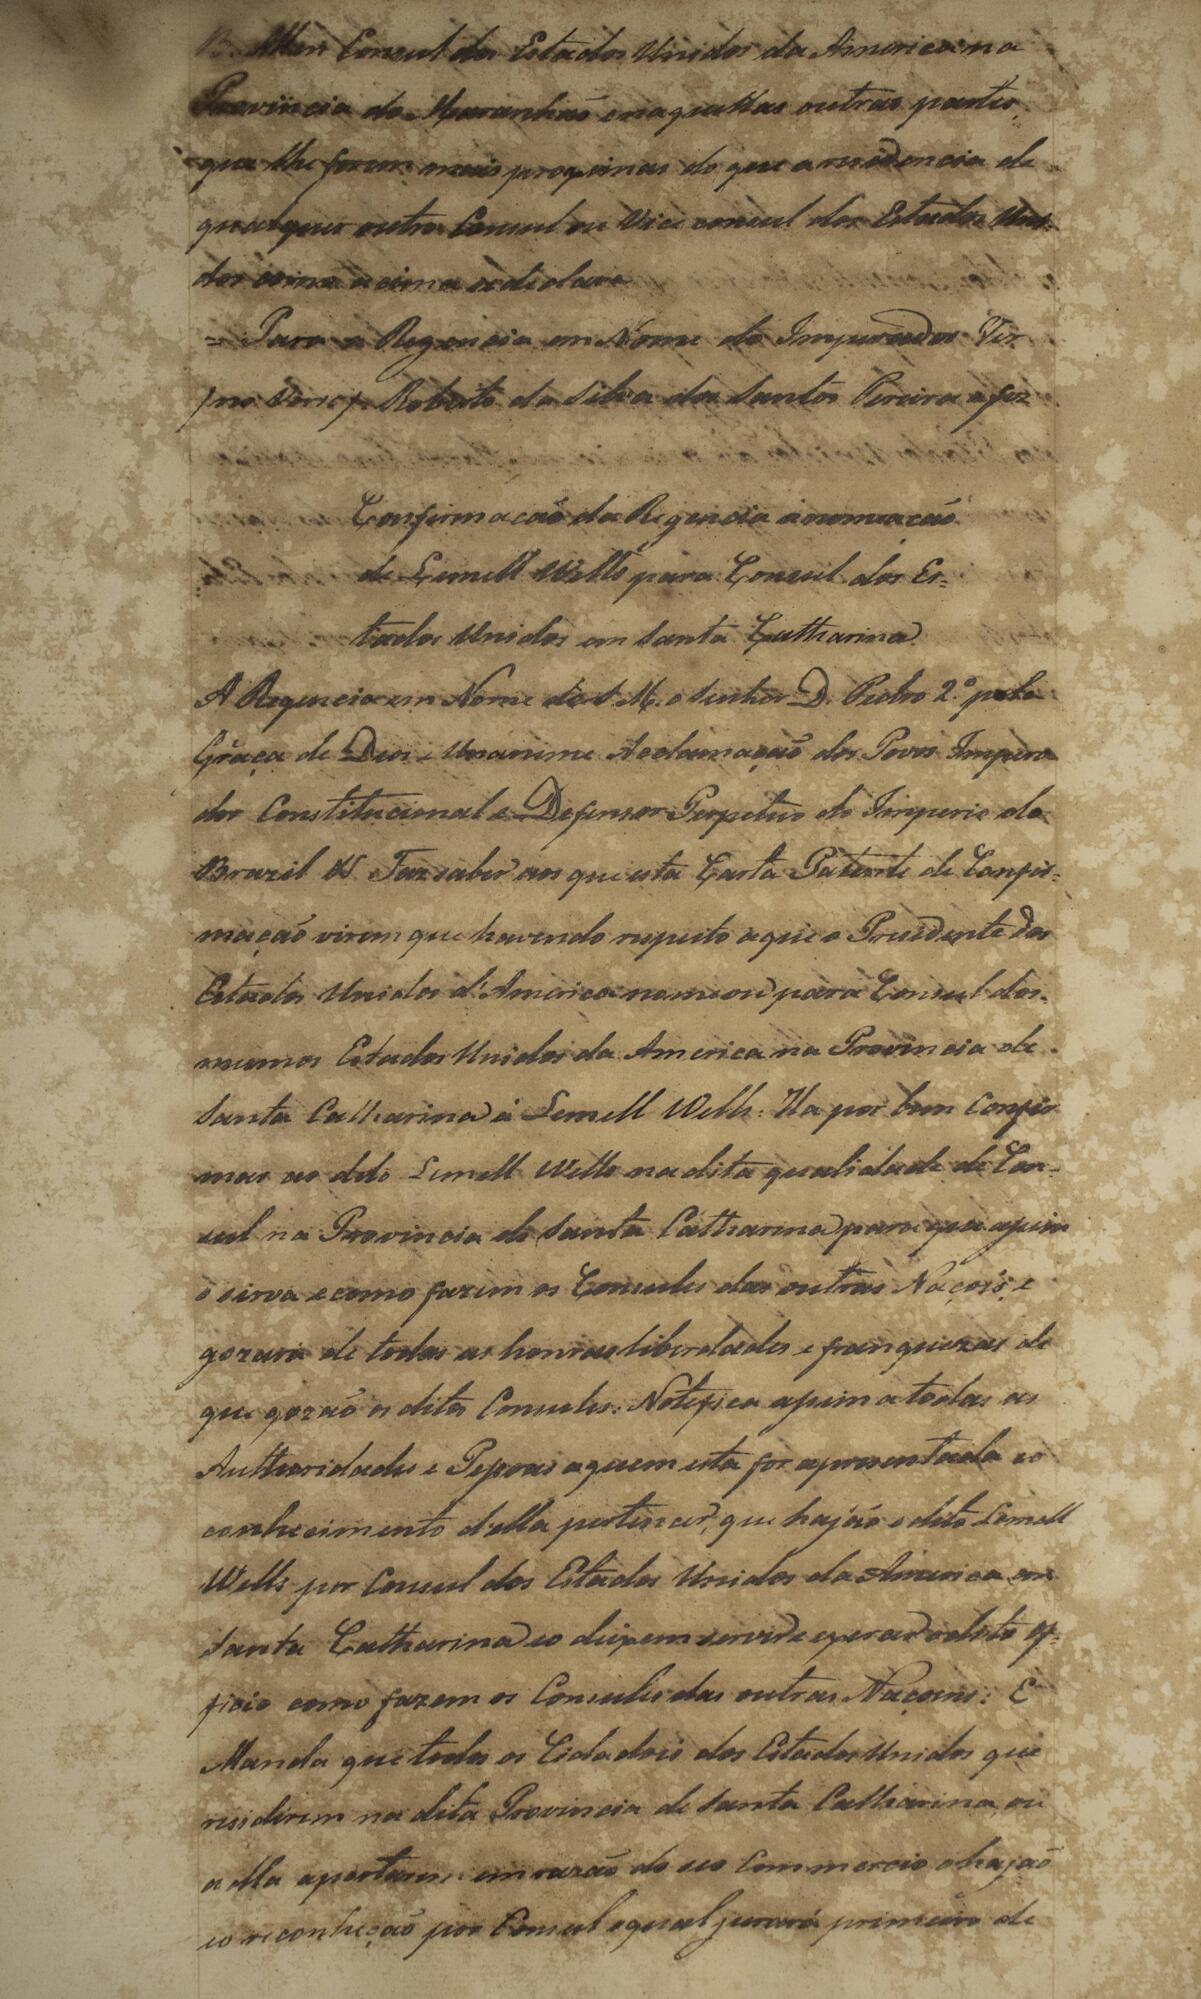 B. Allen Consul dos Estados Unidos da America na
Provincia do Maranhão e naquellas outras partes,
que lhe forem mais proximas do que a residencia de
qualquer outro Consul ou Vice consul dos Estados Uni-
dos como acima se declara
= Para a Regencia em Nome do Imperador Ver
Roberto da Silva dos Santos Pereira a fez
Confirmacaõ da Regencia á nomeacaõ
de Lemell Wells para Consul dos Es=
tados Unidos em Santa Catharina
A Regencia em Nome de S. M. o Senhor D. Pedro 2.º pela
Graça de Deos e Unanime Acclamação dos Povos Impera
dor Constitucional e Defensor Perpetuo do Imperio do
Brazil Faz saber aos que esta Carta Patente de Confir=
mação virem que havendo respeito a que o Presidente dos
Estados Unidos d'America nomeou para Consul dos
mesmos Estados Unidos da America na Provincia de
Santa Catharina á Lemell Wells: Ha por bem Confir
mar ao dito Lemell Wells na dita qualidade de Con-
sul na Provincia de Santa Catharina para que assim
o sirva e como fazem os Consules das outras Naçoẽs, e
gozará de todas as honras liberdades e franquezas de
que gozaõ os ditos Consules: Notifica assim a todas as
Authoridades e Pessoas a quem esta for apresentada e o
conhecimento d'ella pertencer, que hajaõ o dito Lemell
Wells por Consul dos Estados Unidos da America em
Santa Catharina e o deixem servir e exercer o dito Of-
ficio como fazem os Consules das outras Naçoens: E
Manda que todos os Cidadoẽs dos Estados Unidos que
residirem na dita Provincia de Santa Catharina, ou
a ella aportarem em razaõ do seo Commercio o hajaõ
e o reconheçaõ por Consul o qual jurará primeiro de